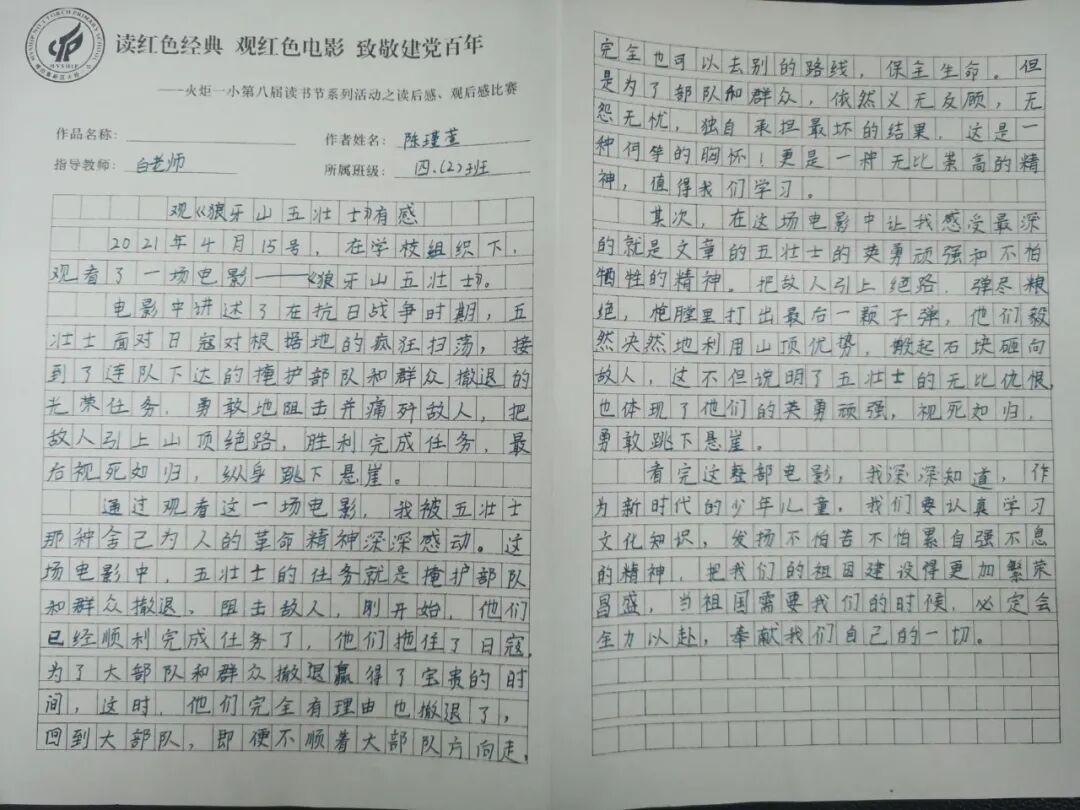 读红色经典 观红色电影 致敬建党百年
——火炬一小第八届读书节系列活动之读后感、观后感比赛
作品名称: 作者姓名: 陈瑾萱
指导教师: 白老师 所属班级: 四.(2)班
观《狼牙山五壮士》有感
2021年4月15号,在学校组织下,
观看了一场电影——《狼牙山五壮士》。
电影中讲述了在抗日战争时期,五
壮士面对日寇对根据地的疯狂扫荡,接
到了连队下达的掩护部队和群众撤退的
光荣任务.勇敢地阻击并痛歼敌人,把
敌人引上山顶绝路,胜利完成任务,最
后视死如归,纵身跳下悬崖。
通过观看这一场电影,我被五壮士
那种舍己为人的革命精神深深感动。这
场电影中,五壮士的任务就是掩护部队
和群众撤退、阻击敌人,刚开始,他们
已经顺利完成任务了,他们拖住了日寇,
为了大部队和群众撤退赢得了宝贵的时
间,这时,他们完全有理由也撤退了,
回到大部队,即便不顺着大部队方向走,
完全也可以去别的路线,保全生命。但
是为了部队和群众,依然义无反顾,无
怨无忧,独自承担最坏的结果,这是一
种何等的胸怀!更是一种无比崇高的精
神,值得我们学习。
其次,在这场电影中让我感受最深
的就是文章的五壮士的英勇顽强和不怕
牺牲的精神。把敌人引上绝路,弹尽粮
绝,枪膛里打出最后一颗子弹,他们毅
然决然地利用山顶优势,掀起石块砸向
敌人,这不但说明了五壮士的无比仇恨,
也体现了他们的英勇顽强,视死如归,
勇敢跳下悬崖。
看完这整部电影,我深深知道,作
为新时代的少年儿童,我们要认真学习
文化知识,发扬不怕苦不怕累自强不息
的精神,把我们的祖国建设得更加繁荣
昌盛,当祖国需要我们的时候,必定会
全力以赴,奉献我们自己的一切。